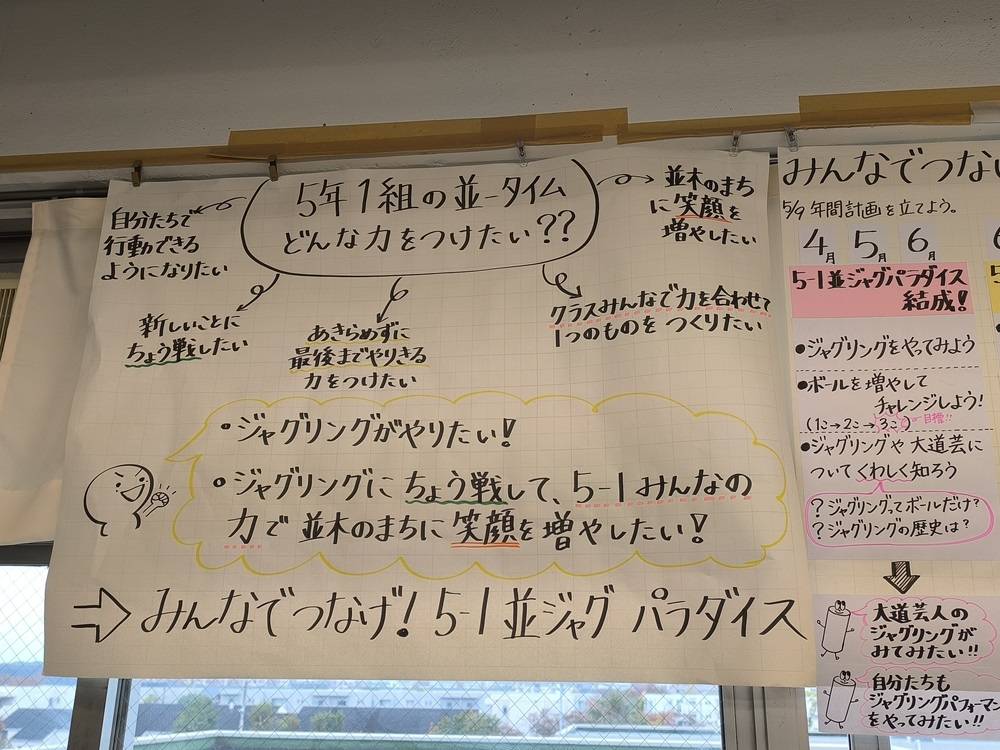 5年1組の並-タイム
どんな力をつけたい??
自分たちで
行動できる
ようになりたい
並木のまち
に笑顔を
増やしたい
新しいことに
ちょう戦したい
あきらめずに
最後までやりきる
力をつけたい
クラスみんなで力を合わせて
1つのものをつくりたい
・ジャグリングがやりたい!
・ジャグリングにちょう戦して、5-1みんなの
力で並木のまちに笑顔を増やしたい!
⇒みんなでつなげ!5-1並ジャグパラダイス
みんなでつない
5/9 年間計画を立てよう。
4月 5月 6月
5-1並ジャグパラダイス
結成!
●ジャグリングをやってみよう
●ボールを増やして
チャレンジしよう!
(1こ→2こ→3こ) 目標!!
●ジャグリングや大道芸に
ついてくわしく知ろう
?ジャグリングってボールだけ?
?ジャグリングの歴史は?
大道芸人の
ジャグリングが
みてみたい!!
自分たちも
ジャグリングパフォーマン
をやってみたい!!